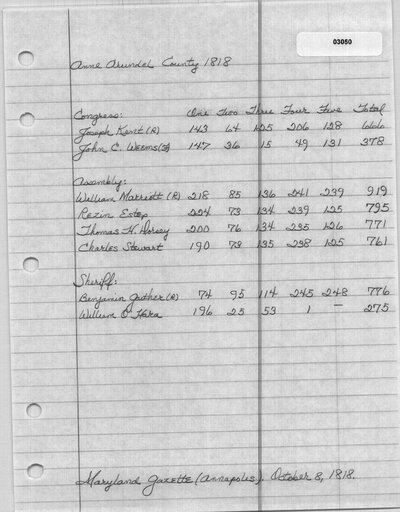 03050
Anne Arundel County 1818
Congress: One Two Three Four Five Total
Joseph Kent (R) 143 64 125 206 128 666
John C. Weems (F) 147 36 15 49 131 378
Assembly:
William Marriott (R) 218 85 136 241 239 919
Rezin Estep 224 73 134 239 125 795
Thomas H. Dorsey 200 76 134 235 126 771
Charles Stewart 190 73 135 238 125 761
Sheriff:
Benjamin Gaither (R) 74 95 114 245 248 776
William O'Hara 196 25 53 1 — 275
Maryland Gazette (Annapolis). October 8, 1818.